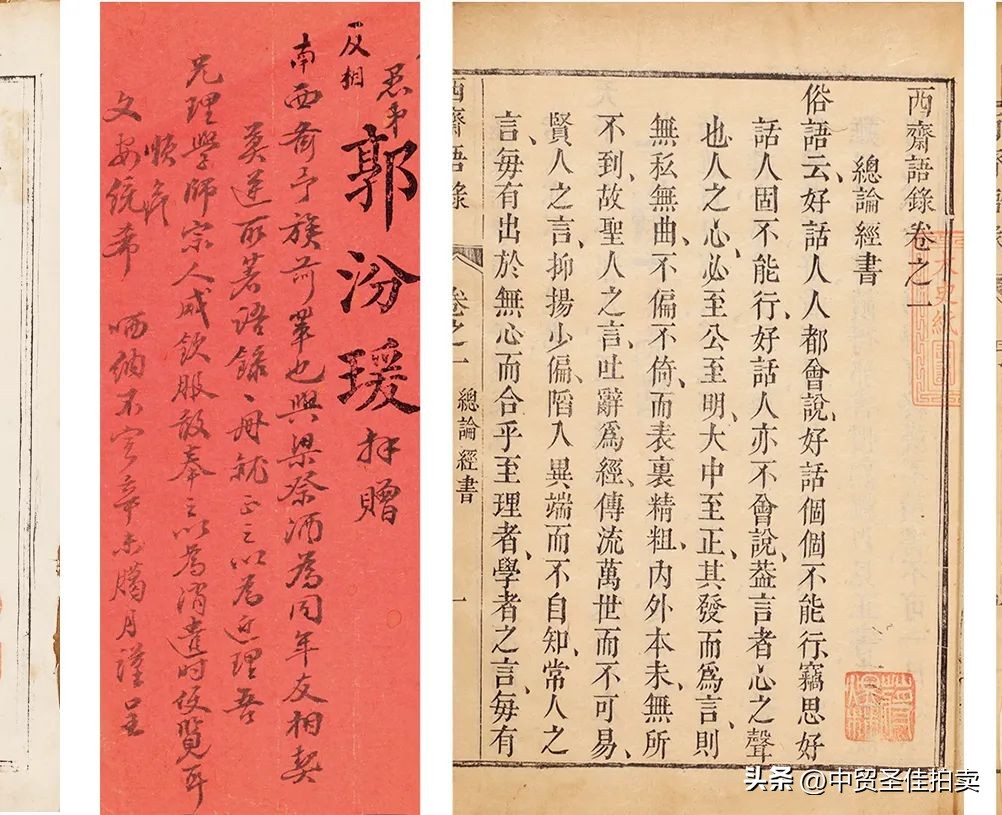 西齋語錄卷之一
總論經書
俗語云好話人人都會說好話個個不能行竊思好
話人固不能行好話人亦不會說葢言者心之聲
也人之心必至公至明大中至正其發而爲言則
無私無曲不偏不倚而表裏精粗內外本末無所
不到故聖人之言吐辭爲經傳流萬世而不可易
賢人之言抑揚少偏陷入異端而不自知常人之
言每有出於無心而合乎至理者學者之言每有
西齋語錄 卷之一 總論經書 一
友相
愚弟郭汾瑗拜贈
南西齋予族前輩也與梁祭酒為同年友相契
莫逆所著語錄一冊就正之以為近理吾
兄理學師宗人咸欽服敬奉之以為消遣時便覽耳
順候
文安統希 哂納不宣辛未臘月謹呈
太史紙圖
头条 @中贸圣佳拍卖